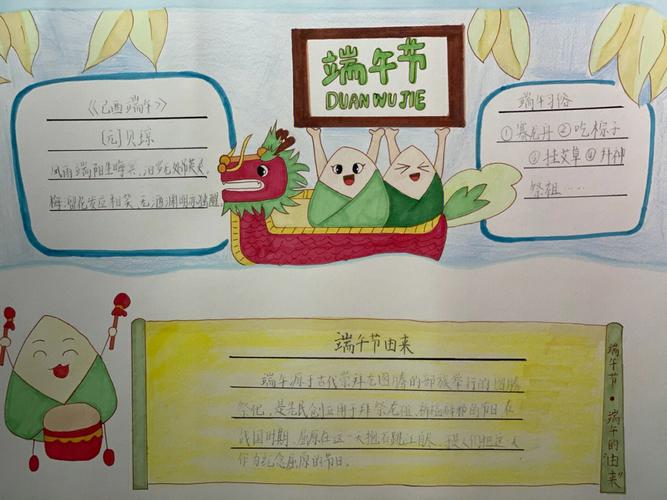 端午节
DUAN WU JIE
《己酉端午》
[元]贝琼
风雨端阳生晦冥，汨罗无处吊英灵，
海榴花发应相笑，无酒渊明亦独醒。
端午习俗
①赛龙舟②吃粽子
③挂艾草④拜神
祭祖……
端午节由来
端午源于古代崇拜龙图腾的部族举行的图腾
祭祀，是先民创立用于拜祭龙祖、祈福辟邪的节日 在
战国时期，屈原在这一天抱石跳江自尽，
作为纪念屈原的节日。
端午节·端午的"由来"